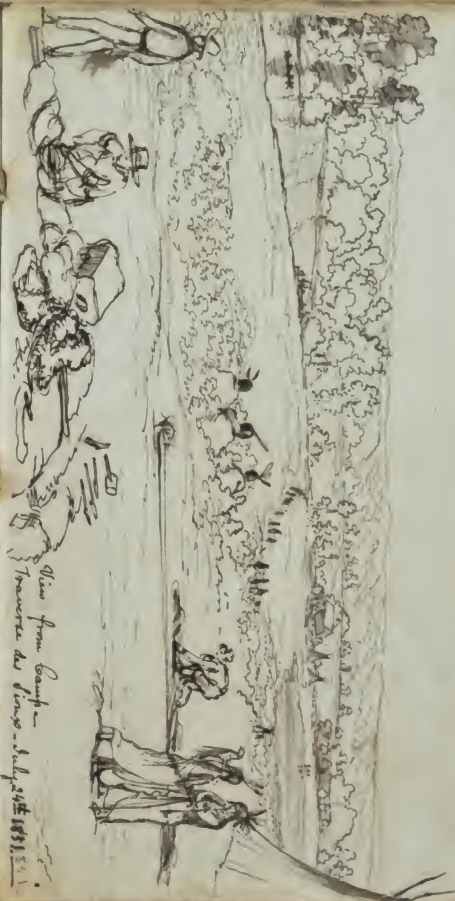 View from Camp –
Traverse des Sioux – July 24th 1851.